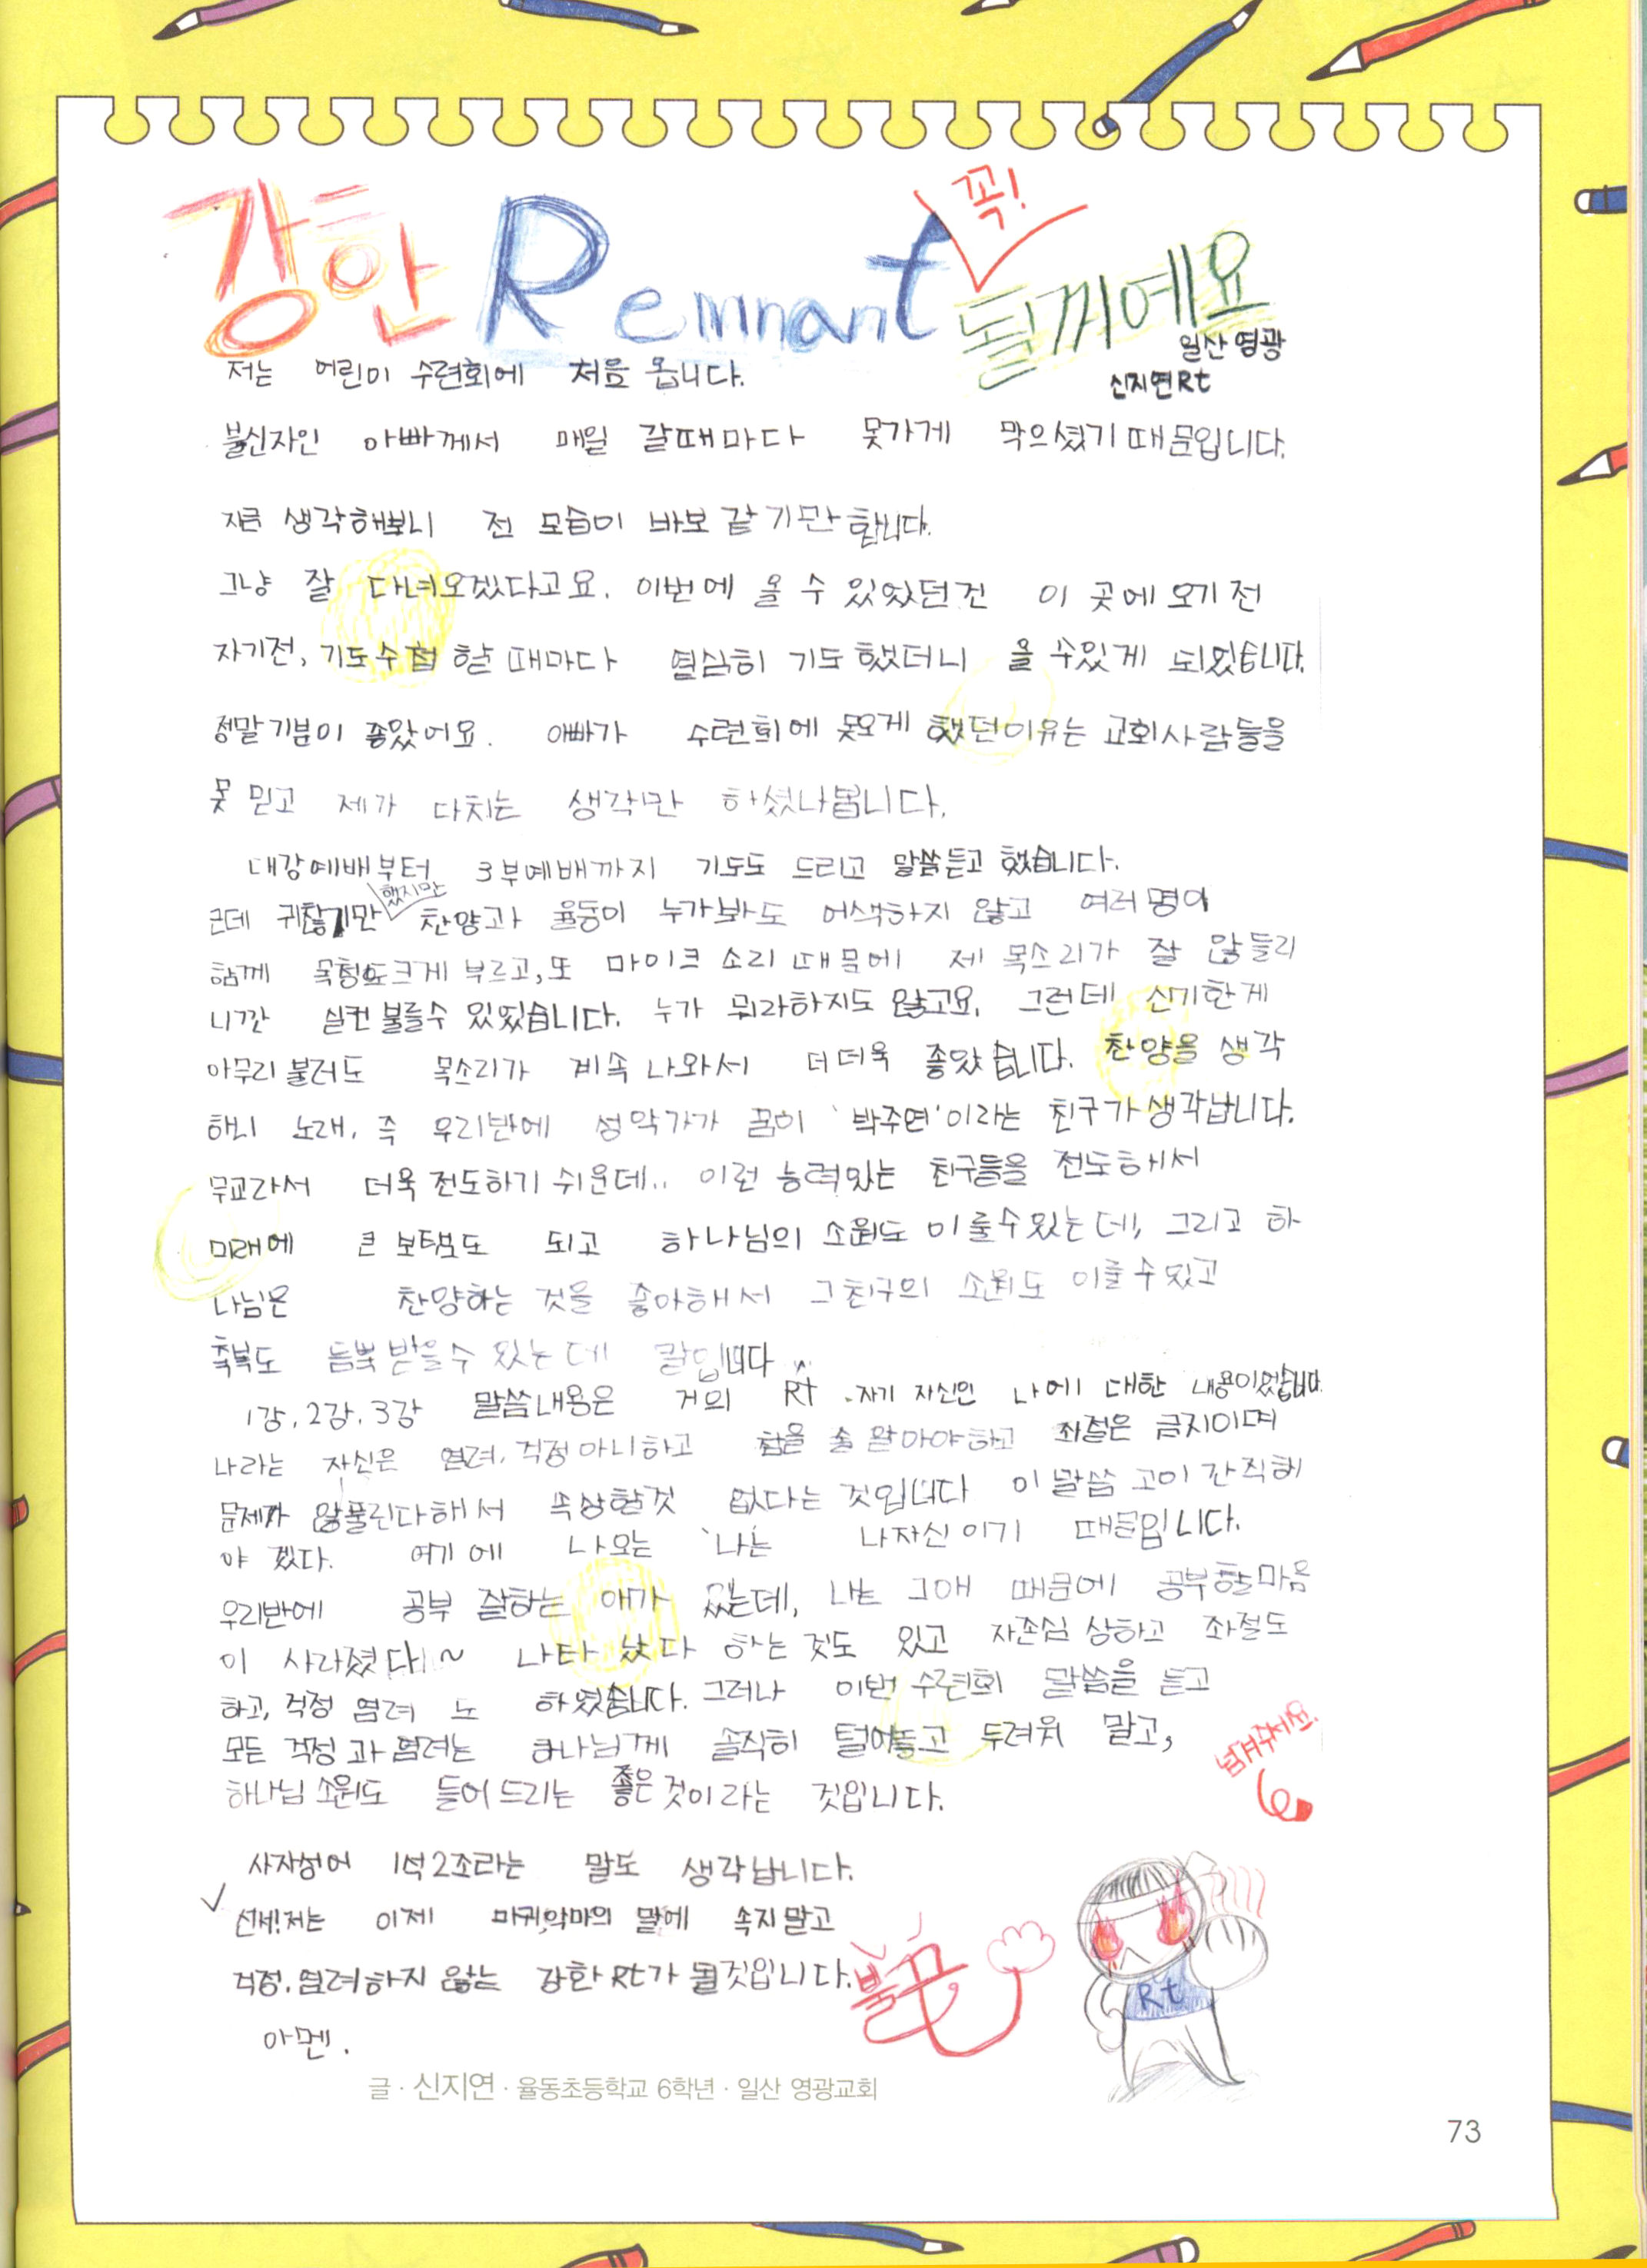 강한 Remnant 꼭! 될께에요
일산 영광
신지연Rt
저는 어린이 수련회에 처음 옵니다.
불신자인 아빠께서 매일 갈때마다 못가게 막으셨기 때문입니다.
지금 생각해보니 전 모습이 바보 같기만 합니다.
그냥 잘 다녀오겠다고요. 이번에 올 수 있었던건 이 곳에 오기 전
자기전, 기도수첩 할 때마다 열심히 기도 했더니 올 수있게 되었습니다.
정말 기분이 좋았어요. 아빠가 수련회에 못오게 했던이유는 교회사람들을
못 믿고 제가 다치는 생각만 하셨나봅니다.
대강예배부터 3부예배까지 기도도 드리고 말씀듣고 했습니다.
근데 귀찮기만 했지만 찬양과 율동이 누가봐도 어색하지 않고 여러명이
함께 목청도크게 부르고, 또 마이크 소리 때문에 제 목소리가 잘 않들리
니깐 실컷 불를수 있었습니다. 누가 뭐라하지도 않고요. 그런데 신기한게
아무리 불러도 목소리가 계속 나와서 더더욱 좋았습니다. 찬양을 생각
해니 노래, 즉 우리반에 성악가가 꿈이 '박주연'이라는 친구가생각납니다.
무교라서 더욱 전도하기 쉬운데.. 이런 능력있는 친구들을 전도해서
미래에 큰 보탬도 되고 하나님의 소원도 이룰수있는데, 그리고 하
나님은 찬양하는 것을 좋아해서 그친구의 소원도 이룰수있고
축복도 듬뿍받을수 있는데 말입니다
1강, 2강, 3강 말씀내용은 거의 Rt. 자기 자신인 나에 대한 내용이었습니다.
나라는 자신은 염려, 걱정아니하고 참을 줄 알아야하고 좌절은 금지이며
문제가 않풀린다해서 속상할것 없다는 것입니다 이 말씀 고이 간직해
야 겠다. 여기에 나오는 '나'는 나자신이기 때문입니다.
우리반에 공부 잘하는 애가 있는데, 나는 그애 때문에 공부할마음
이 사라졌다~ 나타 났다 하는 것도 있고 자존심 상하고 좌절도
하고, 걱정 염려 도 하였습니다. 그러나 이번 수련회 말씀을 듣고
모든 걱정과 염려는 하나님께 솔직히 털어놓고 두려워 말고,
하나님 소원도 들어드리는 좋은것이라는 것입니다.
넘겨주시오.
사자성어 1석2조라는 말도 생각납니다.
선생! 저는 이제 마귀,악마의 말에 속지말고
걱정.염려하지 않는 강한Rt가 될것입니다.
불끈
Rt
아멘.
글 · 신지연 · 율동초등학교 6학년 · 일산 영광교회
73